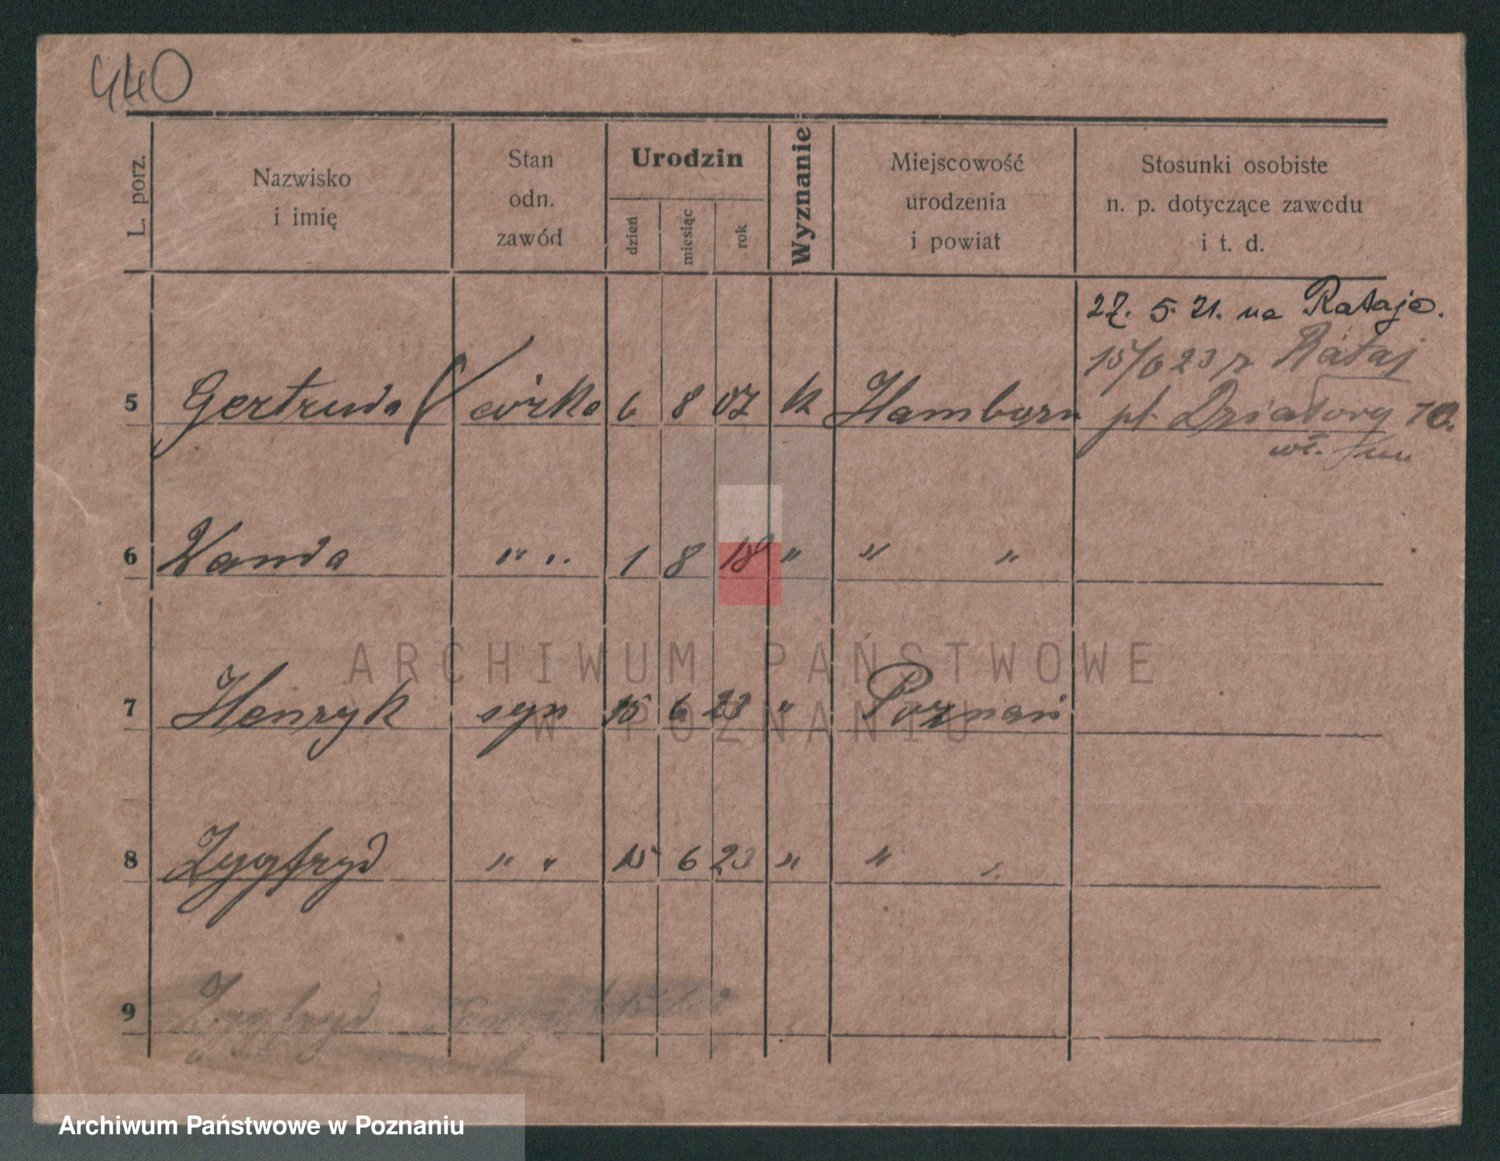 440
L. porz.
Nazwisko
i imię
Stan
odn.
zawód
Urodzin
dzień
miesiąc
rok
Wyznanie
Miejscowość
urodzenia
i powiat
Stosunki osobiste
n. p. dotyczące zawodu
i t. d.
27. 5. 21. na Rataje.
15/6 23 z Rataj
5 Gertruda córka 6 8 07 k Hamborn pl. Działowy 10.
6 Wanda " " 1 8 18 " " "
7 Henryk syn 15 6 23 " Poznań
8 Zygfryd " " 15 6 23 " " "
9 Zygfryd
ARCHIWUM PAŃSTWOWE
W POZNANIU
Archiwum Państwowe w Poznaniu